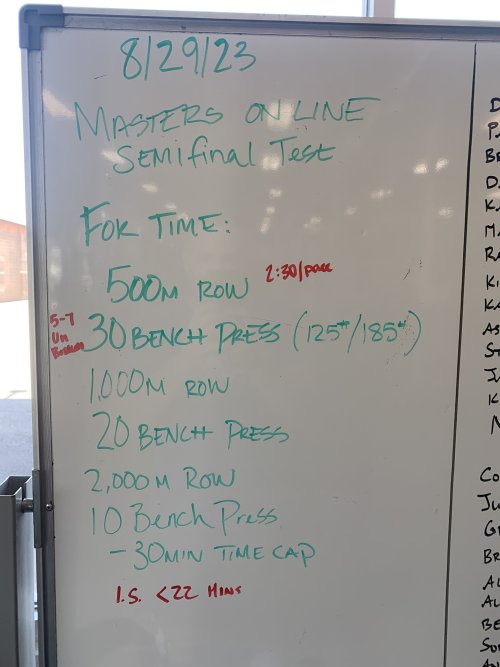 8/29/23
MASTERS ONLINE
SEMIFINAL TEST
FOR TIME:
500M ROW 2:30/pace
5-7
Un
30 BENCH PRESS (125#/185#)
1,000M ROW
20 BENCH PRESS
2,000M ROW
10 Bench Press
- 30MIN TIME CAP
I.S. <22 MINS
D
P
BR
D
K
MA
RA
KI
KA
AS
ST
J
K
N
CO
JU
G
BR
AL
AL
BE
SU